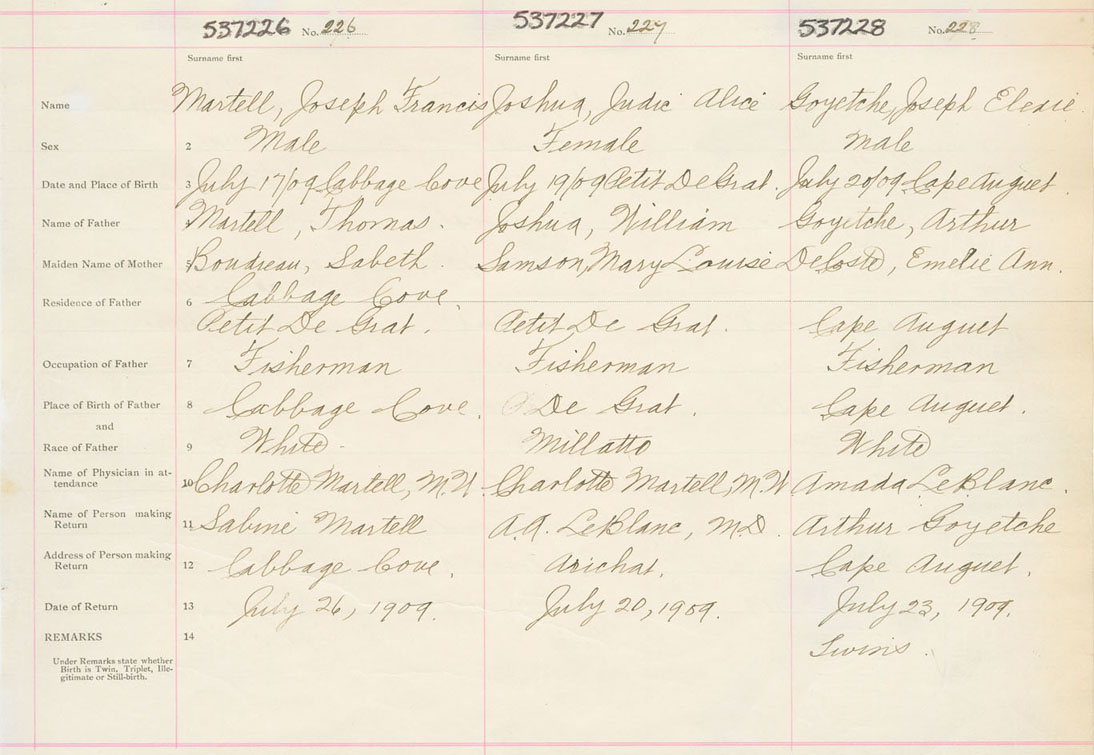 537226 No. 226 537227 No. 227 537228 No. 228
Surname first Surname first Surname first
Name Martell, Joseph Francis Joshua, Judic Alice Goyetche, Joseph Eledie.
Sex 2 Male Female Male
Date and Place of Birth 3 July 17/09 Cabbage Cove July 19/09 Petit De Grat. July 20/09 Cape Auguet.
Name of Father Martell, Thomas. Joshua, William Goyetche, Arthur
Maiden Name of Mother 5 Boudreau, Sabeth. Samson, Mary Louise DeCoste, Emelie Ann.
Residence of Father 6 Cabbage Cove,
Petit De Grat. Petit De Grat. Cape Auguet
Occupation of Father 7 Fisherman Fisherman Fisherman
Place of Birth of Father 8 Cabbage Cove. De Grat. Cape Auguet.
and
Race of Father 9 White - Millatto White
Name of Physician in at-
tendance 10 Charlotte Martell, M.W. Charlotte Martell, M.W Amada LeBlanc.
Name of Person making
Return 11 Sabine Martell A.A. LeBlanc, M.D. Arthur Goyetche
Address of Person making
Return 12 Cabbage Cove. Arichat. Cape Auguet.
Date of Return 13 July 26, 1909. July 20, 1909. July 23, 1909.
REMARKS 14 Twins.
Under Remarks state whether
Birth is Twin, Triplet, Ille-
gitimate or Still-birth.